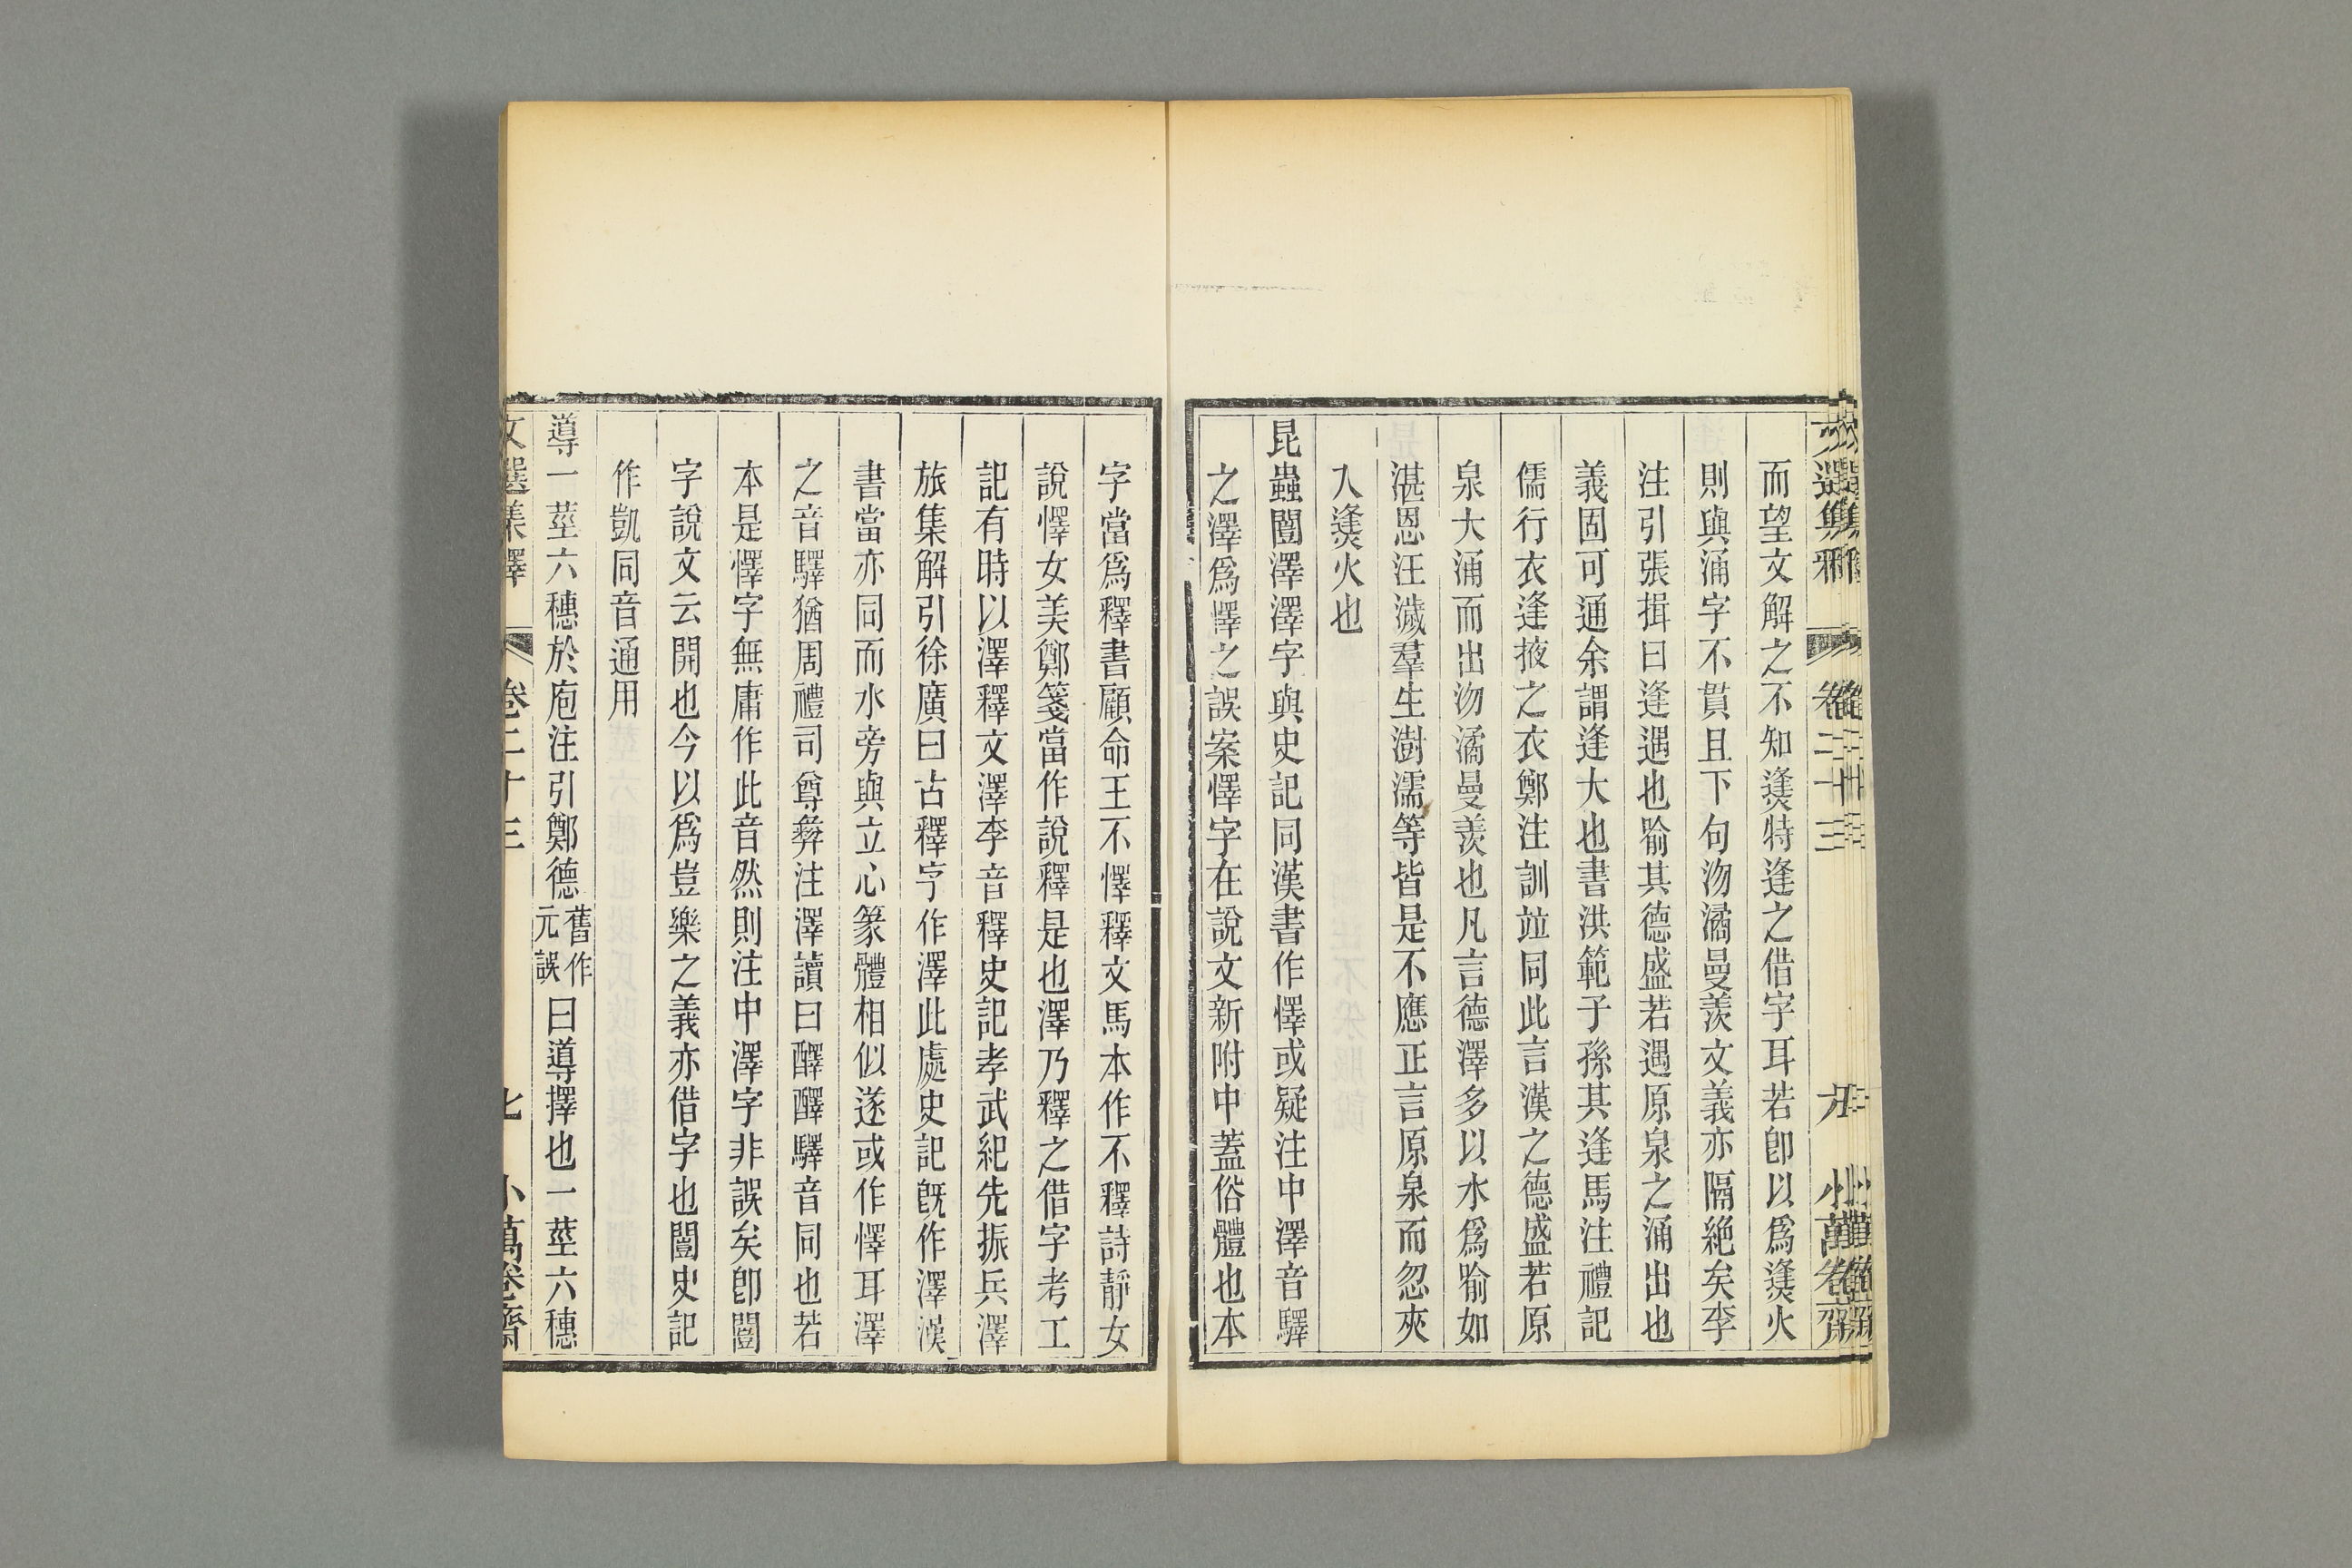 而望文解之不知熢特逢之借字耳若卽以爲熢火
則與涌字不貫且下句沕潏曼羨文義亦隔絶矣李
注引張揖曰逢遇也喻其德盛若遇原泉之涌出也
義固可通余謂逢大也書洪範子孫其逢馬注禮記
儒行衣逢掖之衣鄭注訓竝同此言漢之德盛若原
泉大涌而出沕潏曼羨也凡言德澤多以水爲喻如
湛恩汪濊羣生澍濡等皆是不應正言原泉而忽夾
入熢火也
昆蟲闓澤澤字與史記同漢書作懌或疑注中澤音驛
之澤爲懌之誤案懌字在說文新附中蓋俗體也本
字當爲釋書顧命王不懌釋文馬本作不釋詩靜女
說懌女美鄭箋當作說釋是也澤乃釋之借字考工
記有時以澤釋文澤李音釋史記孝武紀先振兵澤
旅集解引徐廣曰古釋字作澤此處史記旣作澤漢
書當亦同而水旁與立心篆體相似遂或作懌耳澤
之音驛猶周禮司尊彝注澤讀曰醳醳驛音同也若
本是懌字無庸作此音然則注中澤字非誤矣卽闓
字說文云開也今以爲豈樂之義亦借字也闓史記
作凱同音通用
導一莖六穗於庖注引鄭德舊作元誤曰導擇也一莖六穗
文選集釋 卷二十三 七 小萬卷齋